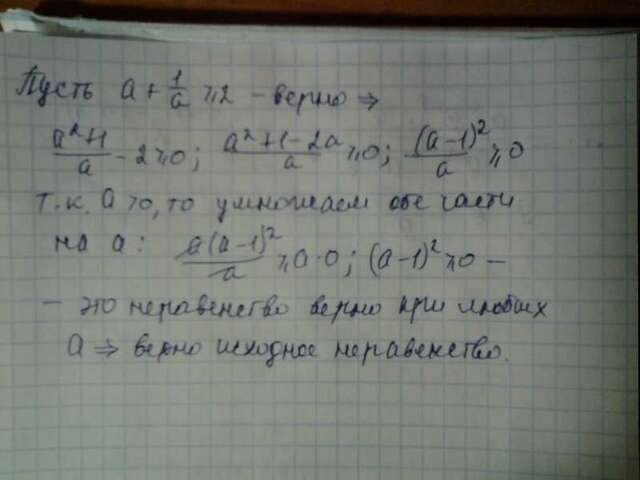 Пусть a + 1/a ⩾ 2 - верно ⇒
(a²+1)/a - 2 ⩾ 0; (a²+1-2a)/a ⩾ 0; (a-1)²/a ⩾ 0
т.к. a > 0, то умножаем обе части
на a: a(a-1)²/a ⩾ a·0; (a-1)² ⩾ 0 -
- это неравенство верно при любых
a ⇒ верно исходное неравенство.